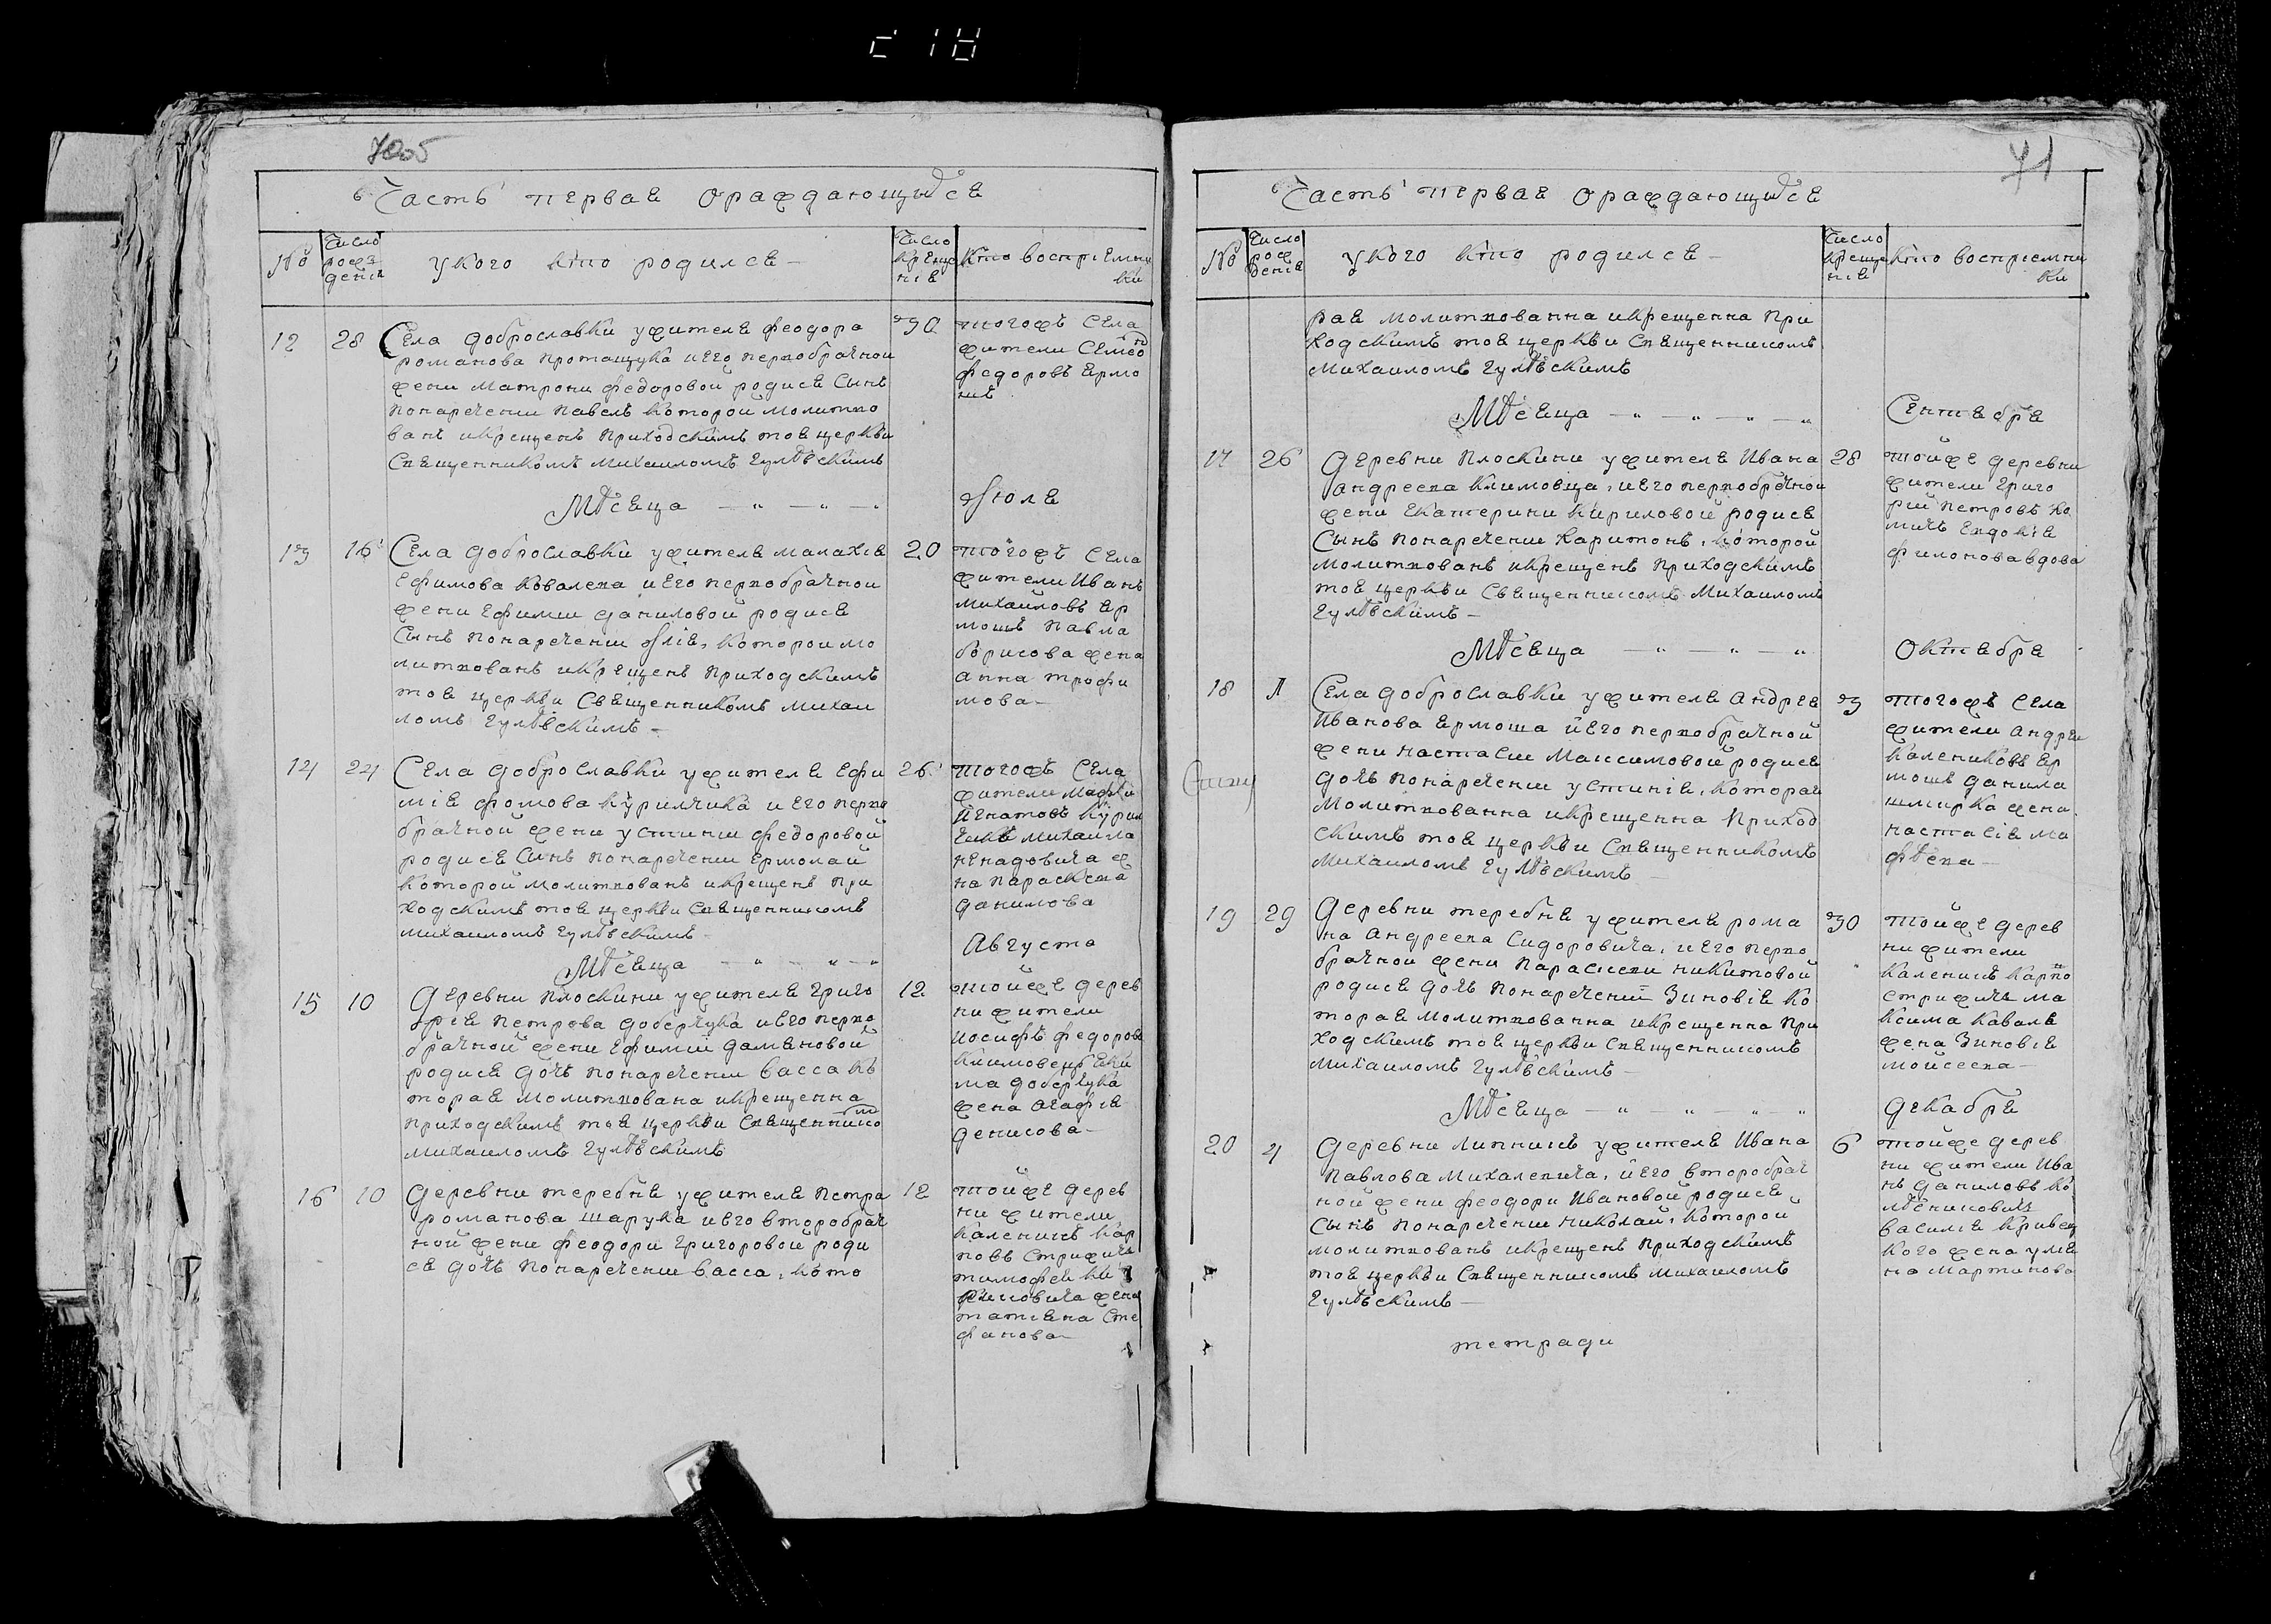 70об
Часть первая ораждающихсе
№
Число
рож
дения
укого кто родилсе
Число
Креще
ніе
Кто восприемни
ки
12
28
Села доброславки ужителе феодора
романова протащука иего первобрачной
жени матрони федоровой родисе Сынъ
понаречении павелъ которои молитво
ванъ икрещенъ приходскимъ тое церкви
Священникомъ михаиломъ
30
тогожъ Села
жители Семео
федоровъ ермо
шъ
Мѣсеца
Июле
13
16
Села доброславки ужителе малахіе
Ефимова ковалева иего первобрачнои
жени Ефимии даниловой родисе
Сынъ понаречении Иліе, которои мо
литвованъ икрещенъ приходскимъ
тое церкви Священникомъ михаи
ломъ
20
тогожъ Села
жители Иванъ
михайловъ ер
мошъ павла
борисова жена
анна трофи
мова
14
24
Села доброславки ужителе Ефи
міе фомова курилчика иего перво
брачной жени устинии федоровой
родисе Синъ понаречении Ермолай
которой молитвованъ икрещенъ при
ходскимъ тое церкви Священникомъ
михаиломъ
26
тогожъ Села
жители
игнатовъ курил
михаила
ненадовича же
на параскева
данилова
Мѣсеца
Августа
15
10
Деревни плоскини ужителе григо
ріе петрова доберчука иего перво
брачной жени Ефимии даменовой
родисе дочъ понаречении васса ко
торае молитвована икрещенна
приходскимъ тое церкви Священнико
михаиломъ
12
тойже дерев
ни жители
иосифъ федоровъ
климовец Еки
ма доберчука
жена агафіе
денисова
16
10
Деревни теребне ужителе петра
романова шарука иего второбрач
ной жени феодори григоровой роди
се дочъ понаречении васса, кото
12
тойже дерев
ни жители
каленикъ кар
повъ Стрижичъ
тимофеи
жена
татиена Сте
фанова
71
Часть первая ораждающихсе
№
Число
рож
дение
укого кто родилсе
Число
Креще
ніе
кто восприемни
ки
рае молитвованна икрещенна при
ходскимъ тое церкви Священникомъ
михаиломъ
Мѣсеца
Сентебре
17
26
Деревни плоскини ужителе Ивана
андреева климовца, иего первобрачной
жени Екатерини кириловой родисе
Сынъ понаречении харитонъ, которой
молитвованъ икрещенъ приходскимъ
тое церкви Священникомъ Михаиломъ
28
тойже деревни
жители григо
рій петровъ хо
мичъ Евдокіе
филонова вдова
Мѣсеца
Октебре
18
1
Села доброславки ужителе андрее
Иванова ермоша иего первобрачной
жени настасии Максимовой родисе
дочъ понаречении устиніе, которая
молитвованна икрещенна приход
скимъ тое церкви Священникомъ
Михаиломъ
3
тогожъ Села
жители андреи
калениковъ ер
мошъ данила
шмирка жена
настасіе ма
фѣева
19
29
Деревни теребне ужителе рома
на андреева Сидоровича, иего перво
брачной жени параскеви никитовой
родисе дочъ понаречении Зиновіе ко
торае молитвованна икрещенна при
ходскимъ тое церкви Священникомъ
михаиломъ
30
тойже дерев
ни жители
каленикъ карпо
стрижичъ ма
ксима ковале
жена Зиновіе
мойсеева
Мѣсеца
Декабре
20
4
Деревни липникъ ужителе Ивана
павлова михалевича, иего второбрач
ной жени феодори Ивановой родисе
Сынъ понаречении николай, которой
молитвованъ икрещенъ приходскимъ
тое церкви Священникомъ михаиломъ
6
тойже дерев
ни жители Ива
нъ даниловъ ко
василіе кривец
кого жена улие
на мартинова
тетради